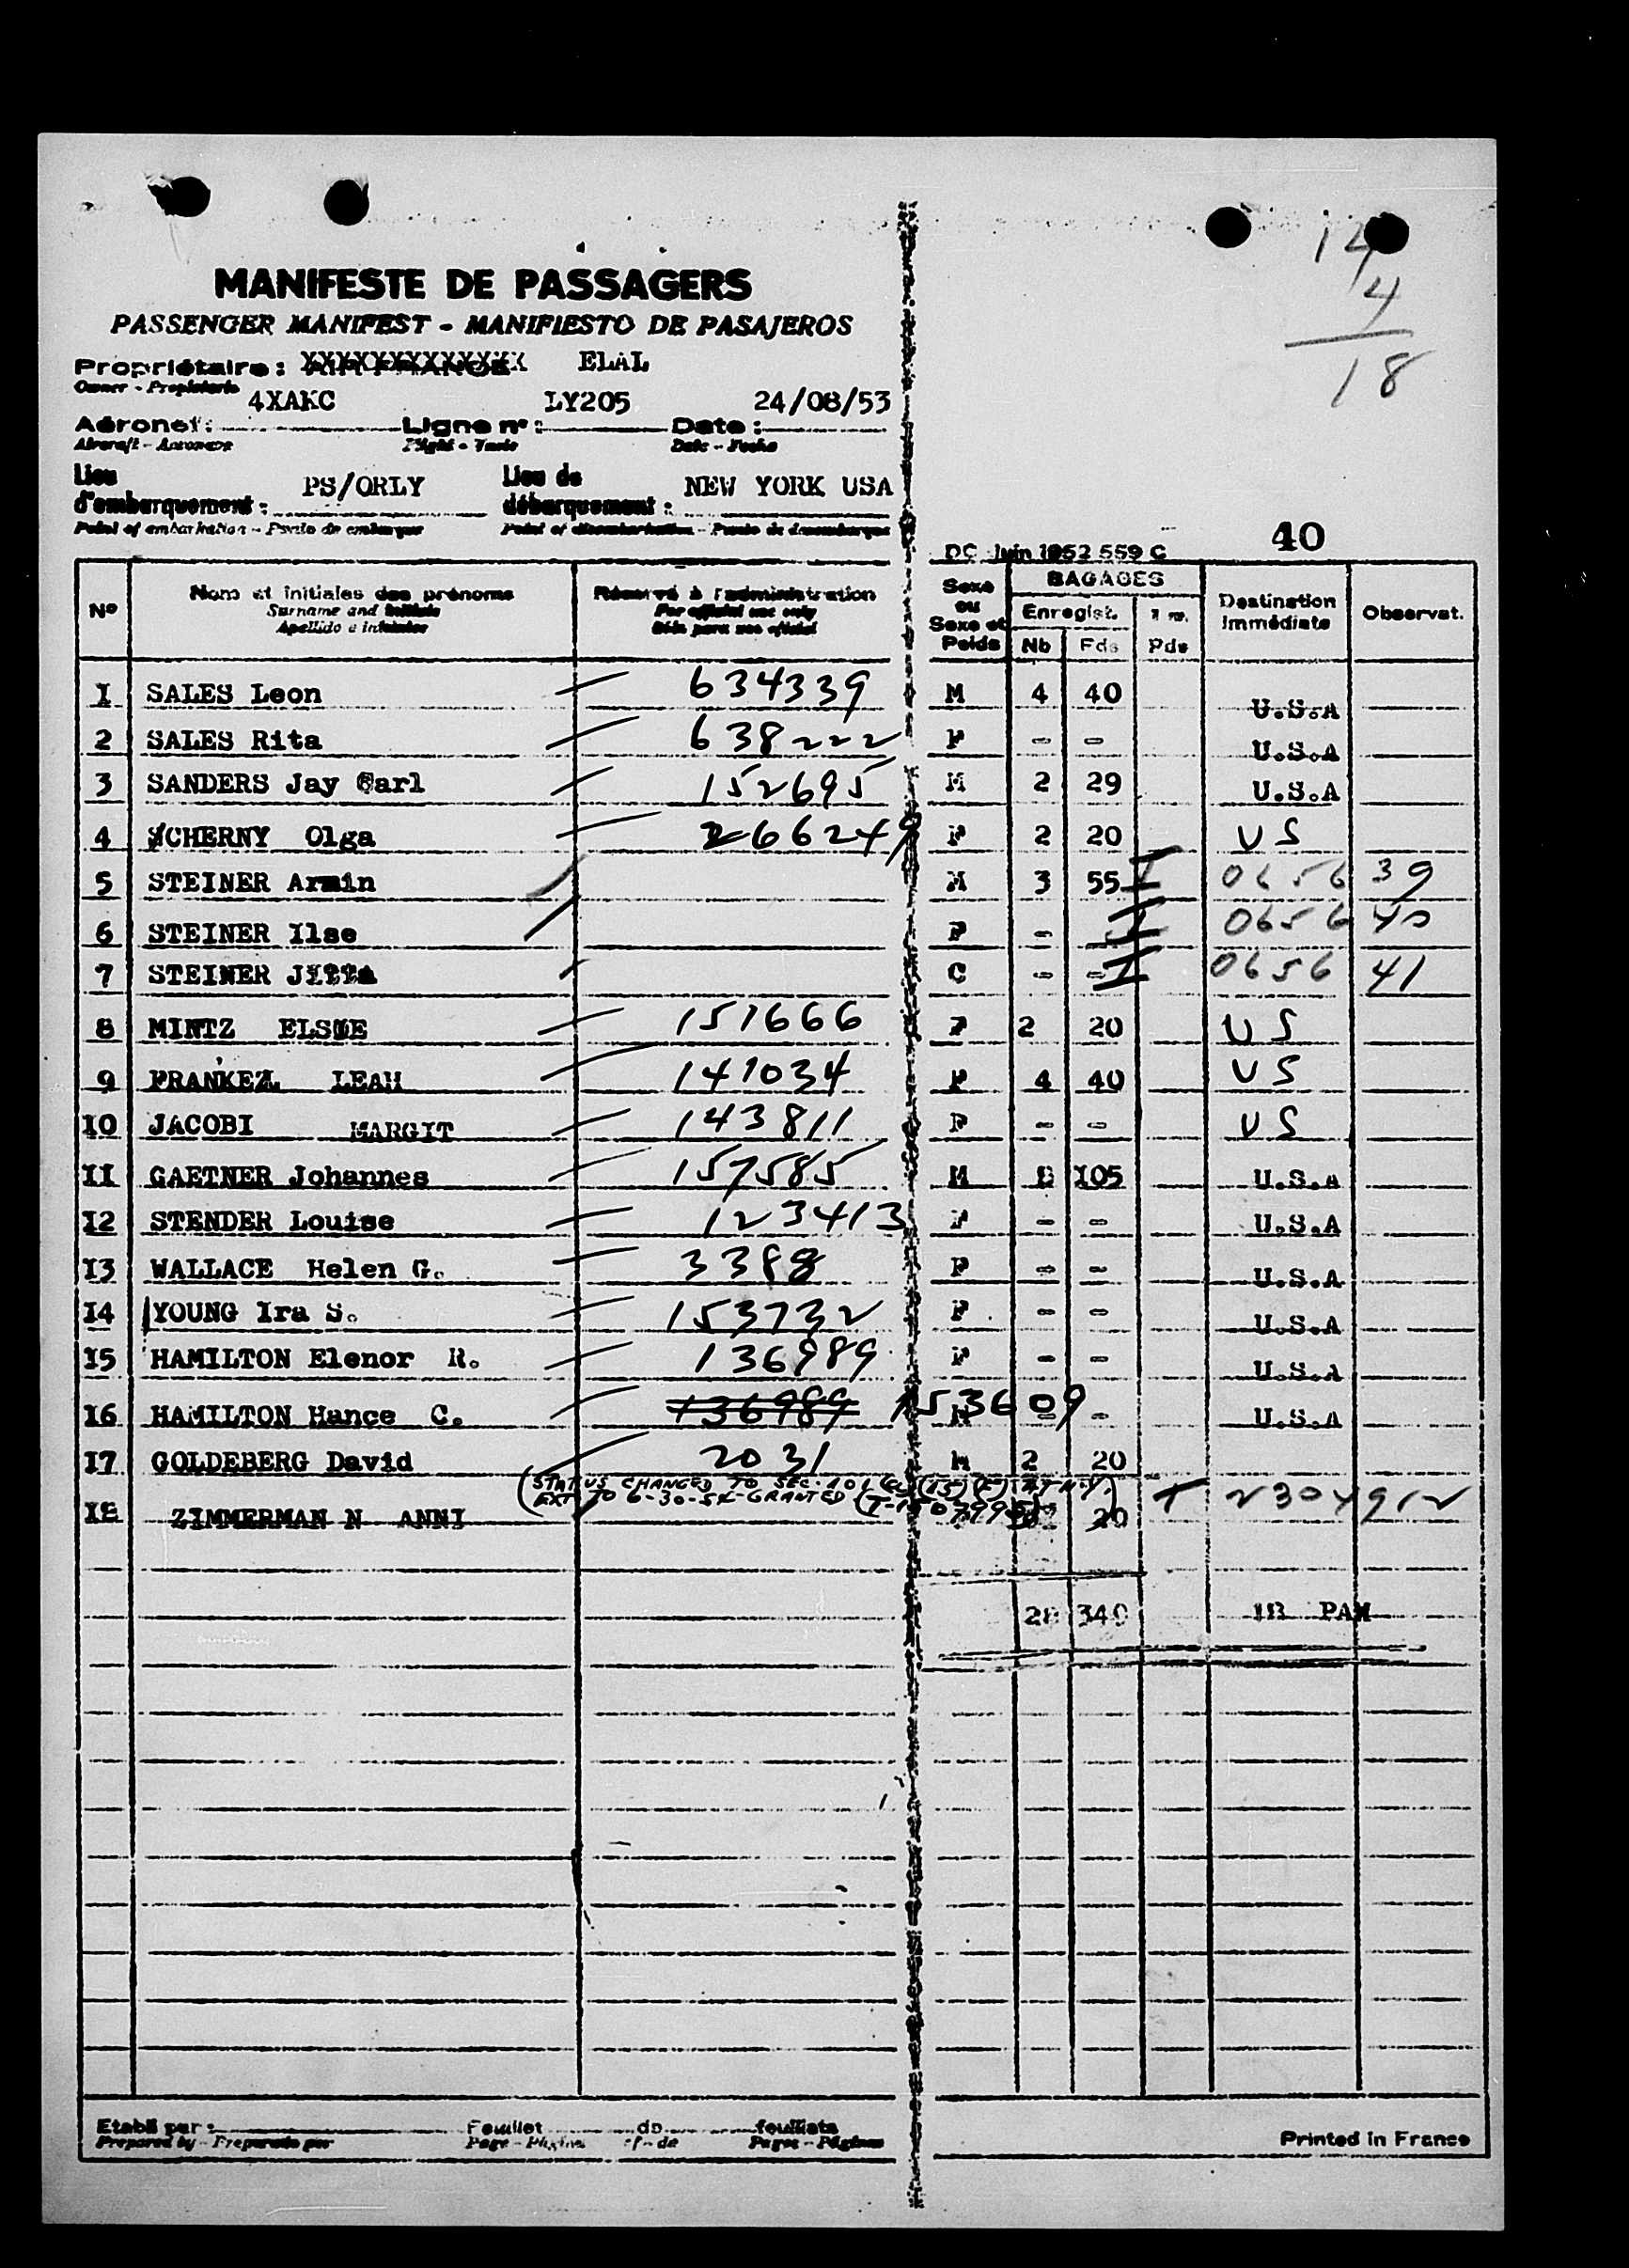 14
4
18
MANIFESTE DE PASSAGERS
PASSENGER MANIFEST - MANIFIESTO DE PASAJEROS
Propriétaire : XXXXXXXXXXXXX ELAL
Owner - Propietario
4XAKC LY205 24/08/53
Aéronef : Ligne n° : Date :
Aircraft - Aeronave Flight - Date - Fecha
Lieu d'embarquement : PS/ORLY Lieu de débarquement : NEW YORK USA
Point of embarkation - Punto de embarque Point of disembarkation - Punto de desembarque
DC Juin 1952 559 C 40
N° Noms et initiales des prénoms Réservé à l'administration Sexe ou Sexe et Poids BAGAGES Enregist. Nb Pds Pds Destination Immédiate Observat.
Surname and initials For official use only
Apellido e iniciales Sólo para uso oficial
I SALES Leon 634339 M 4 40 U.S.A
2 SALES Rita 638222 F - - U.S.A
3 SANDERS Jay Carl 152695 M 2 29 U.S.A
4 SCHERNY Olga 266249 F 2 20 US
5 STEINER Armin M 3 55 I 0656 39
6 STEINER Ilse F - I 0656 40
7 STEINER C - - I 0656 41
8 MINTZ ELSIE 151666 F 2 20 US
9 FRANKEL LEAH 141034 F 4 40 US
10 JACOBI MARGIT 143811 F - - US
II GAETNER Johannes 157585 M 8 105 U.S.A
I2 STENDER Louise 123413 F - - U.S.A
I3 WALLACE Helen G. 3388 F - - U.S.A
I4 YOUNG Ira S. 153732 F - - U.S.A
I5 HAMILTON Elenor R. 136989 F - - U.S.A
I6 HAMILTON Hance C. 136989 153609 M - - U.S.A
I7 GOLDEBERG David 2031 M 2 20
(STATUS CHANGED TO SEC. 101 (15) (F) AT N.Y.)
EXT TO 6-30-54 - GRANTED
I8 ZIMMERMAN N ANNI 20 T 2304912
28 340 18 PAX
Etabli par : Feuillet de feuillets
Prepared by - Preparado por Page - Página of - de Pages - Páginas
Printed in France